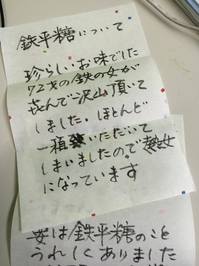 鉄平糖について
珍らしいお味でした
72才の鉄の女が
喜んで沢山頂いて
しました。ほとんど
一箱いただいて
しまいましたので
になっています
女は鉄平糖のこと
うれしくありました